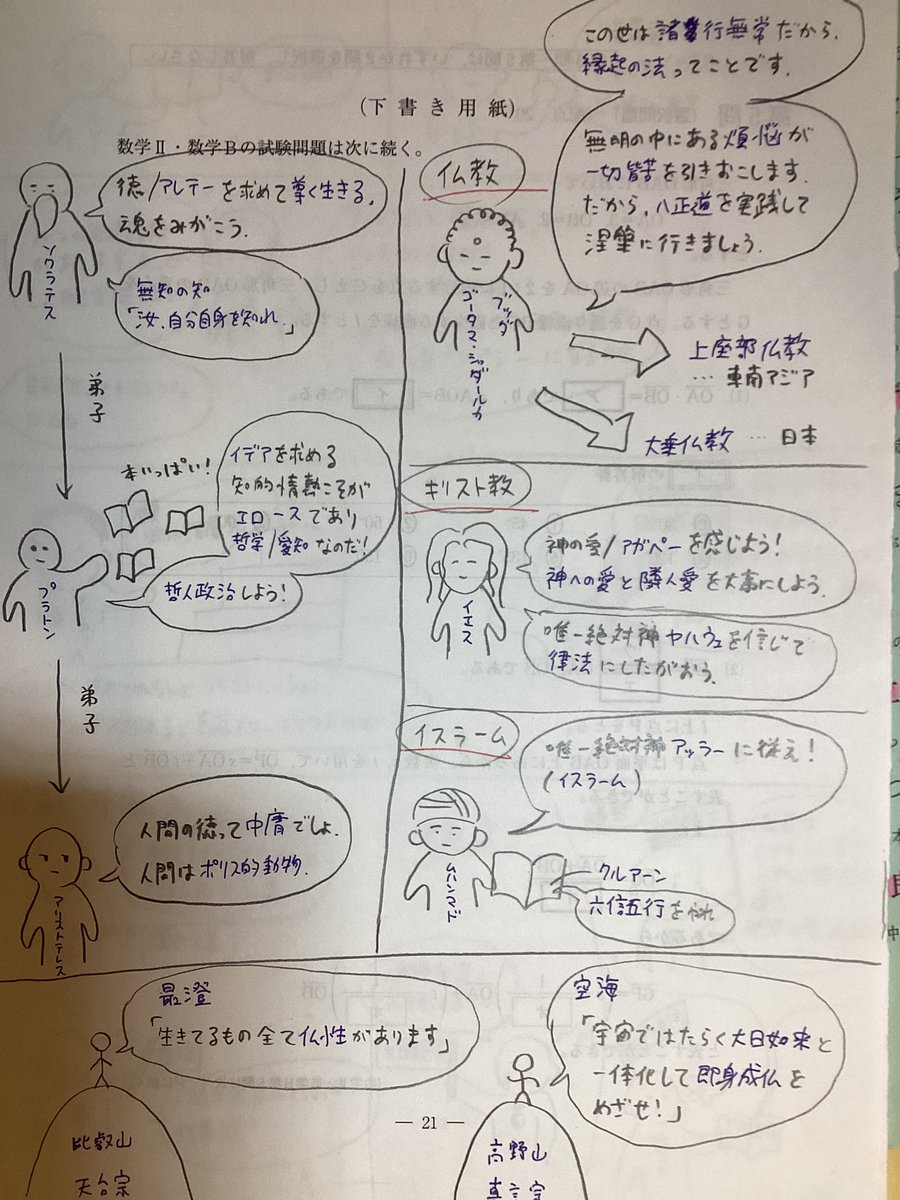 (下書き用紙)
数学Ⅱ・数学Bの試験問題は次に続く。
徳/アレテーを求めて善く生きる。
魂をみがこう。
ソクラテス
無知の知
「汝、自分自身を知れ。」
弟子
本いっぱい!
イデアを求める
知的情熱こそが
エロースであり
哲学/愛知なのだ!
哲人政治しよう!
プラトン
弟子
人間の徳って中庸でしょ。
人間はポリス的動物。
アリストテレス
仏教
この世は諸行無常だから、
縁起の法ってことです。
無明の中にある煩悩が
一切皆苦を引きおこします。
だから、八正道を実践して
涅槃に行きましょう。
ブッダ
ゴータマ・シッダールタ
上座部仏教
… 東南アジア
大乗仏教 … 日本
キリスト教
神の愛/アガペーを感じよう!
神への愛と隣人愛を大事にしよう。
イエス
唯一絶対神ヤハウェを信じて
律法にしたがおう。
イスラーム
唯一絶対神アッラーに従え!
(イスラーム)
ムハンマド
クルアーン
六信五行をやれ
最澄
「生きてるもの全て仏性があります」
比叡山
天台宗
空海
「宇宙ではたらく大日如来と
一体化して即身成仏を
めざせ!」
高野山
真言宗
― 21 ―